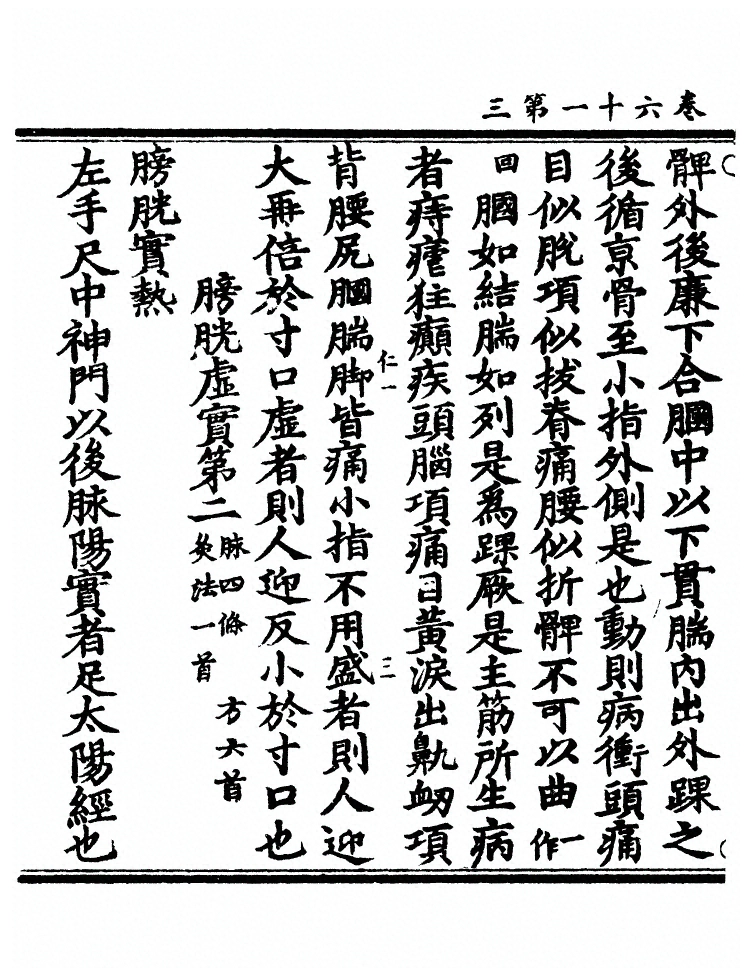 三第一十六卷
髀外後廉下合膕中以下貫腨內出外踝之
後循京骨至小指外側是也動則病衝頭痛
目似脫項似拔脊痛腰似折髀不可以曲一作
回膕如結腨如列是爲踝厥是主筋所生病
者痔瘧狂癲疾頭腦項痛目黃淚出鼽衂項
背腰尻膕腨脚皆痛小指不用盛者則人迎
大再倍於寸口虛者則人迎反小於寸口也
膀胱虛實第二脉四條 方六首
灸法一首
膀胱實熱
左手尺中神門以後脉陽實者足太陽經也
仁一
三